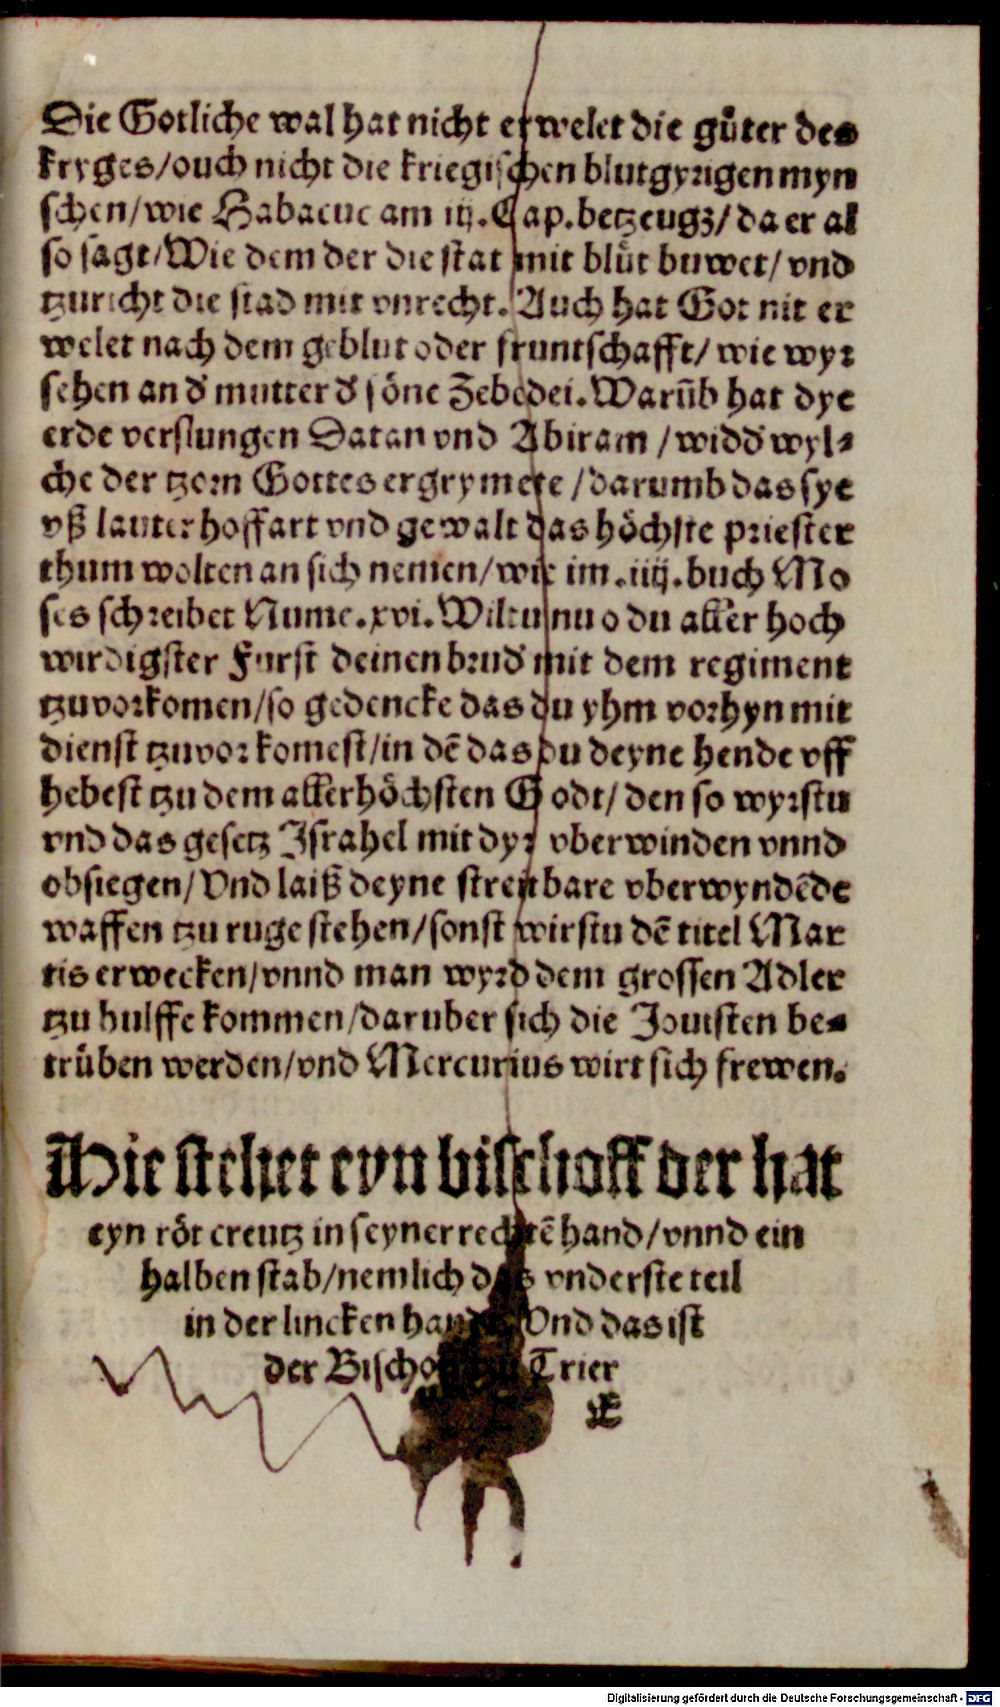 Die Gotliche wal hat nicht erwelet die gůter des
kryges/ouch nicht die kriegischen blutgyrigen myn
schen/wie Habacuc am iij.Cap.betzeugʒ/da er al
so sagt/Wie dem der die stat mit blůt buwet/vnd
tzuricht die stad mit vnrecht. Auch hat Got nit er
welet nach dem geblut oder fruntschafft/wie wyr
sehen an d' mutter d' söne Zebedei. Warūb hat dye
erde verslungen Datan vnd Abiram /widd' wyl⸗
che der tzorn Gottes ergrymete /darumb das sye
vß lauter hoffart vnd gewalt das höchste priester
thum wolten an sich nemen/wie im.iiij.buch Mo
ses schreibet Nume.xvi.Wiltu nu o du aller hoch
wirdigster Furst deinen brud' mit dem regiment
tzuvorkomen/so gedencke das du yhm vorhyn mit
dienst tzuvorkomest/in dē das du deyne hende vff
hebest tzu dem allerhöchsten Godt/den so wyrstu
vnd das gesetz Israhel mit dyr vberwinden vnnd
obsiegen/Vnd laiß deyne streitbare vberwyndēde
waffen tzu ruge stehen/sonst wirstu dē titel Mar
tis erwecken/vnnd man wyrd dem grossen Adler
tzu hulffe kommen/daruber sich die Jouisten be⸗
trüben werden/vnd Mercurius wirt sich frewen.
Hie stehet eyn bischoff der hat
eyn röt creutz in seyner rechtē hand/vnnd ein
halben stab/nemlich das vnderste teil
in der lincken hand Vnd das ist
der Bischoff zu Trier
Digitalisierung gefördert durch die Deutsche Forschungsgemeinschaft - DFG